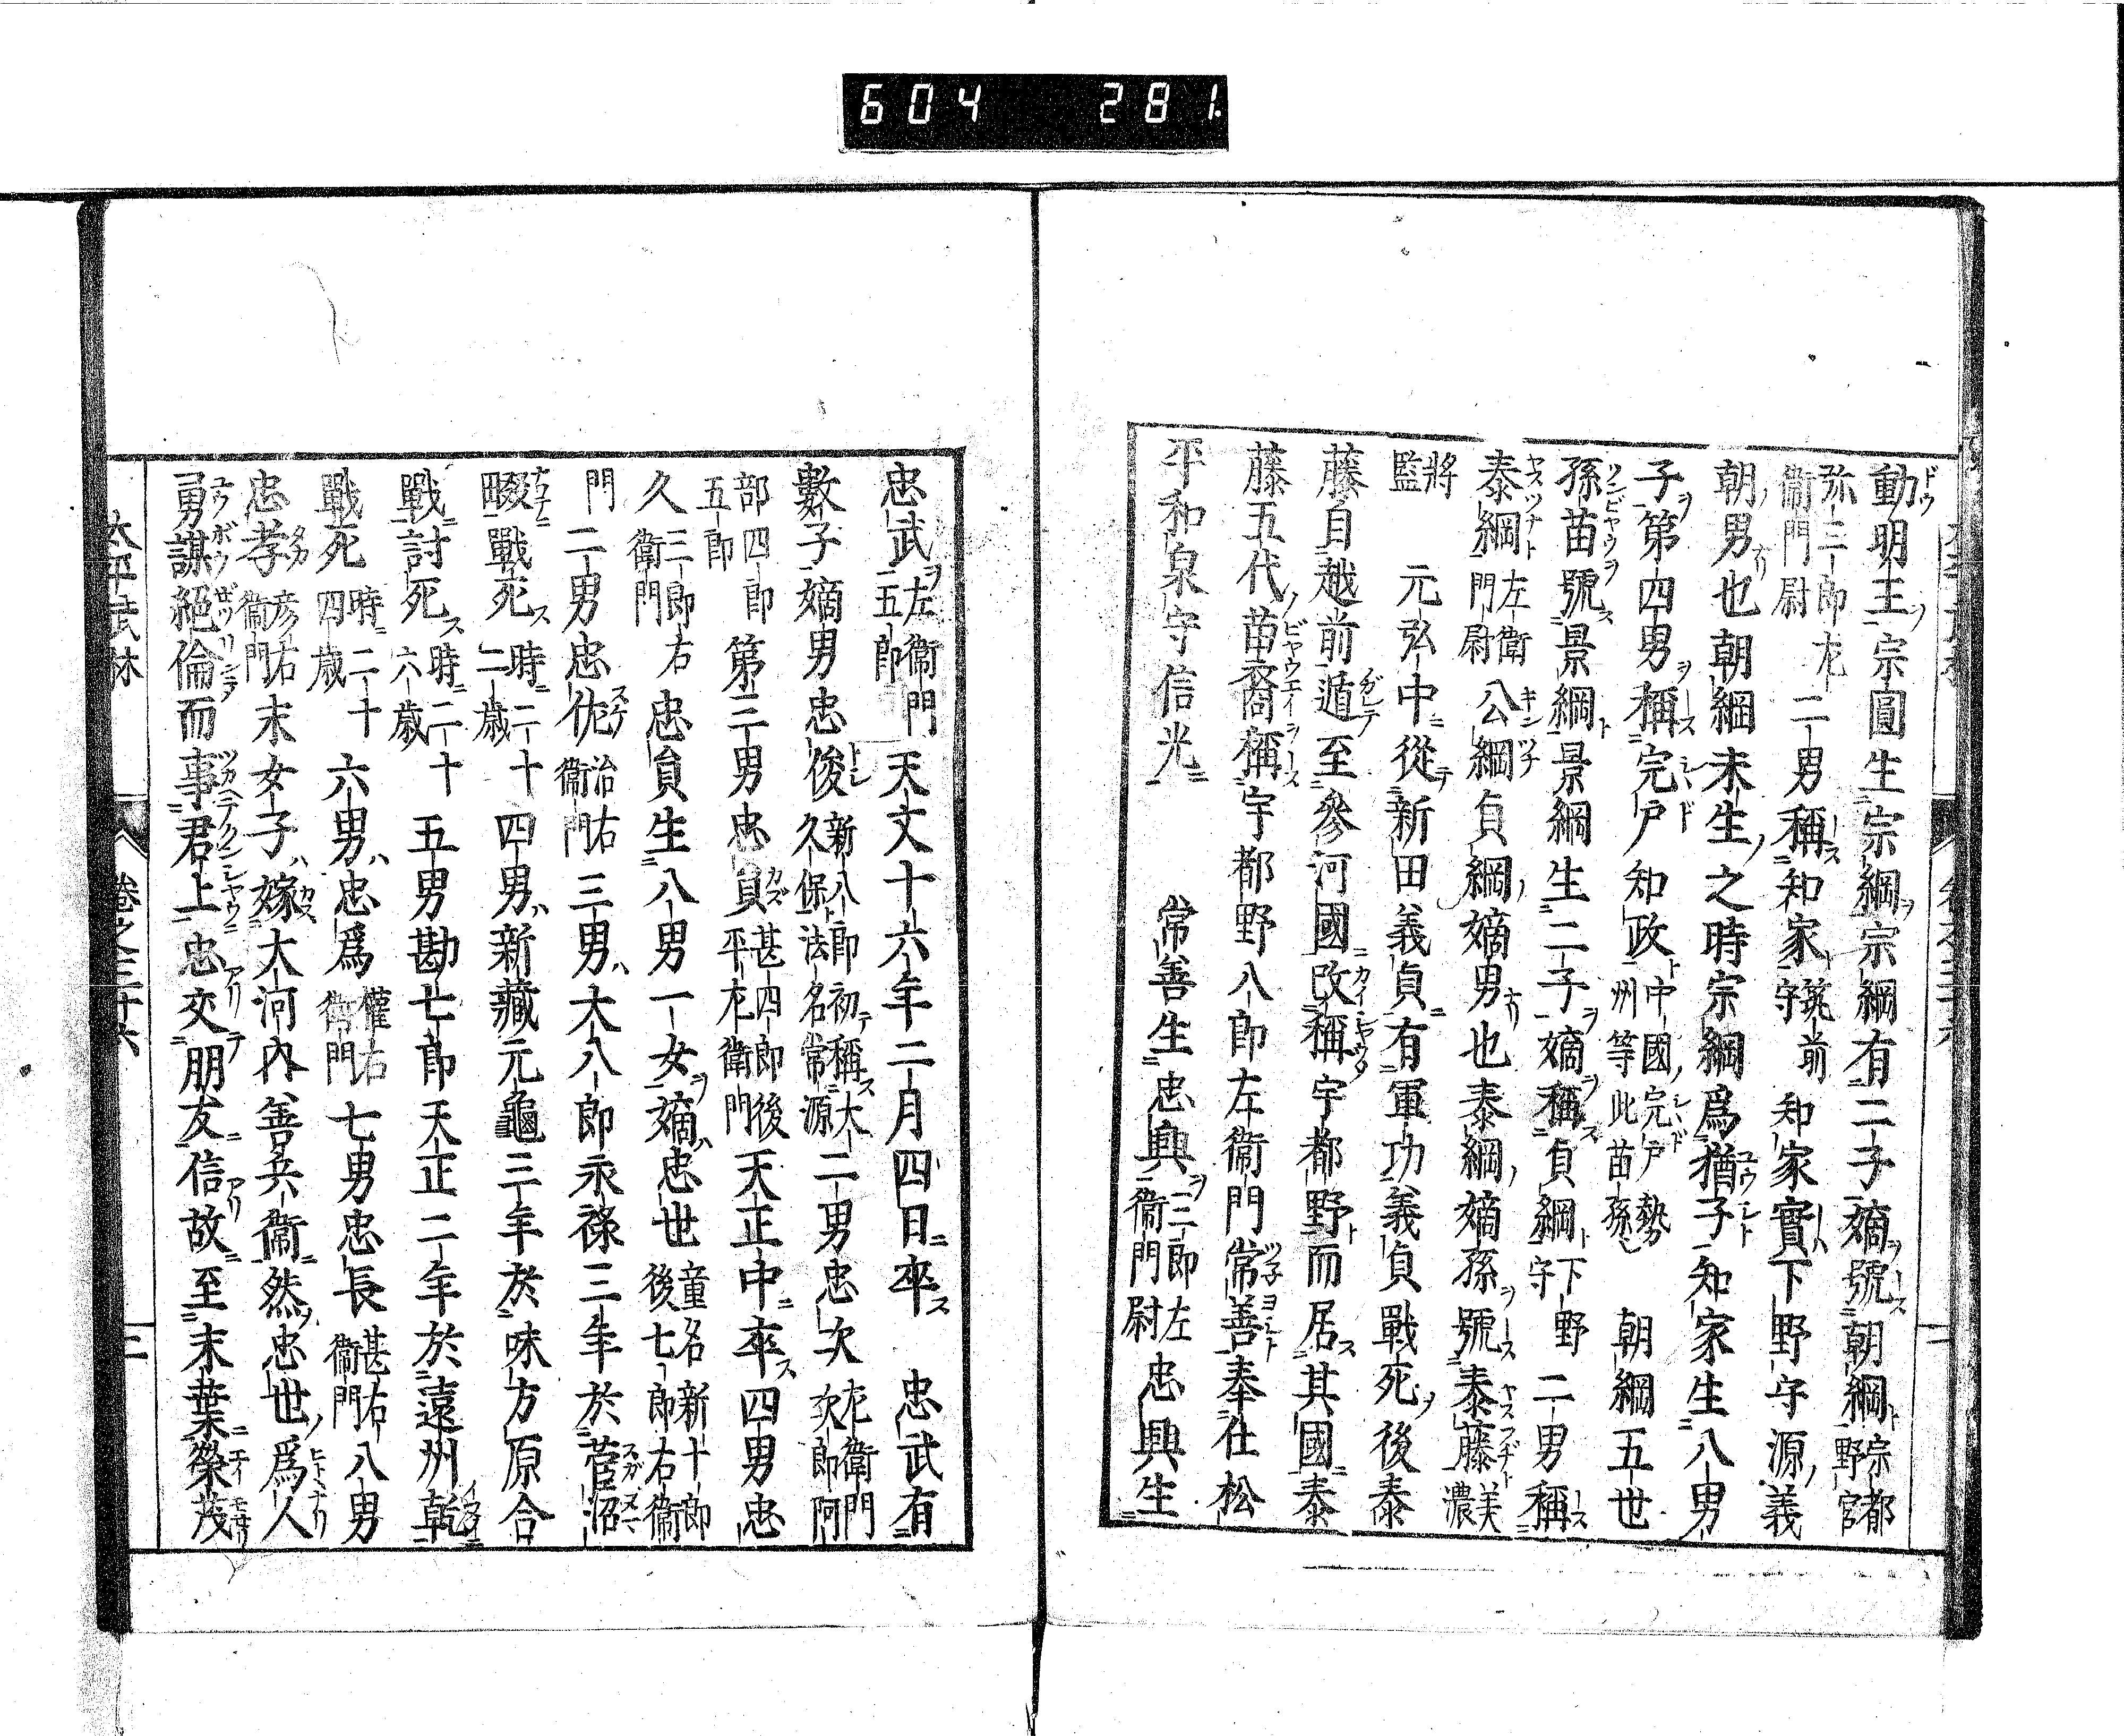 604 281
動明王宗圓生宗綱宗綱有二子嫡號朝綱宗都野官
弥三郎左衞門尉二男稱知家筑前守知家實下野守源義
朝男也朝綱未生之時宗綱爲猶子知家生八男
子第四男稱宍戸知政中國宍戸勢州等此苗孫朝綱五世
孫苗號景綱景綱生二子嫡稱貞綱下野守二男稱
泰綱左衞門尉公綱貞綱嫡男也泰綱嫡孫號泰藤美濃
將監元弘中從新田義貞有軍功義貞戰死後泰
藤自越前遁至參河國改稱宇都野而居其國泰
藤五代苗裔稱宇都野八郎左衞門常善奉仕松
平和泉守信光常善生忠興三郎左衞門尉忠興生
忠武左衞門五郎天文十六年二月四日卒忠武有
數子嫡男忠俊新八郎初稱大久保法名常源二男忠次左衞門次郎阿
部四郎五郎第三男忠員甚四郎後平左衞門天正中卒四男忠
久三郎右衞門忠員生八男一女嫡忠世童名新十郎後七郎右衞
門二男忠佐治右衞門三男大八郎永祿三年於菅沼
畷戰死時二十二歳四男新藏元龜三年於味方原合
戰討死時二十六歳五男勘七郎天正二年於遠州乾
戰死時二十四歳六男忠爲權右衞門七男忠長甚右衞門八男
忠孝彦右衞門末女子嫁大河内善兵衞然忠世爲人
勇謀絶倫而事君上忠交朋友信故至末葉榮茂
太平武林 卷之三十六 三